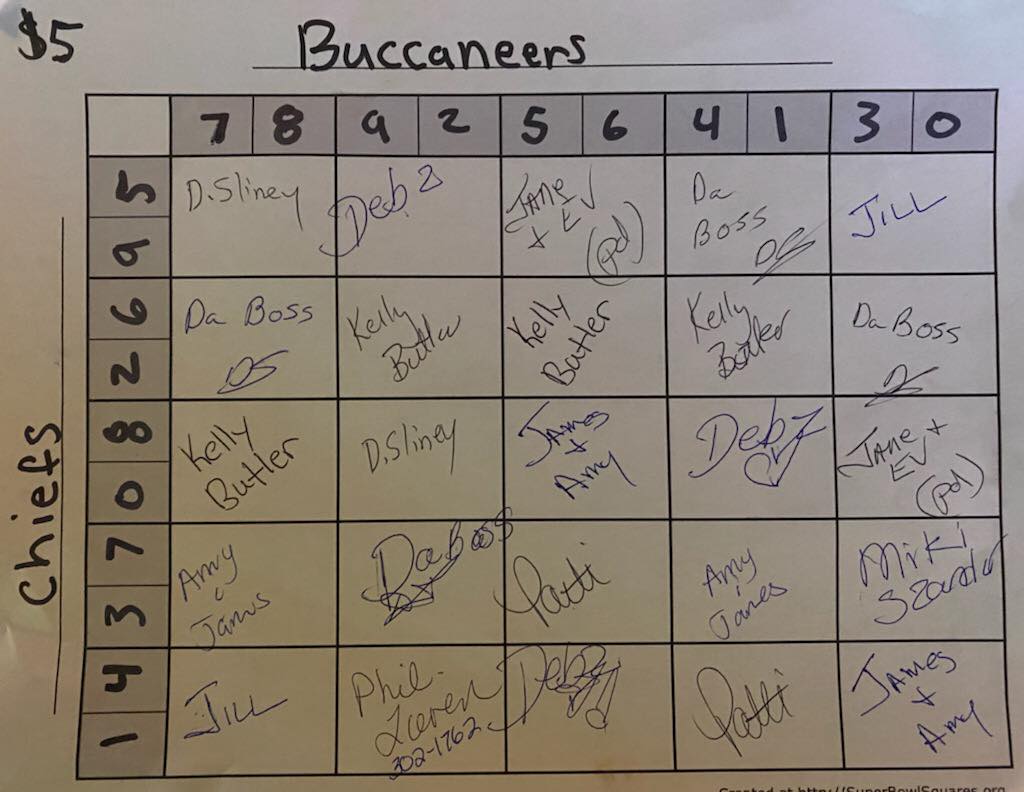 $5
Buccaneers
7 8 9 2 5 6 4 1 3 0
Chiefs
5
9
D.Sliney
Deb Z
JANE
+ EV
(pd)
Da
BOSS
DS
JILL
6
2
Da BOSS
DS
Kelly
Butler
Kelly
Butler
Kelly
Butler
Da BOSS
8
0
Kelly
Butler
D.Sliney
JAmes
+
Amy
Deb Z
JANE +
EV
(pd)
7
3
Amy
James
Da Boss
Patti
Amy
James
Miki
4
1
JILL
Phil
302-1762
Deb Z
Patti
JAmes
+
Amy
Created at http://SuperBowlSquares.org